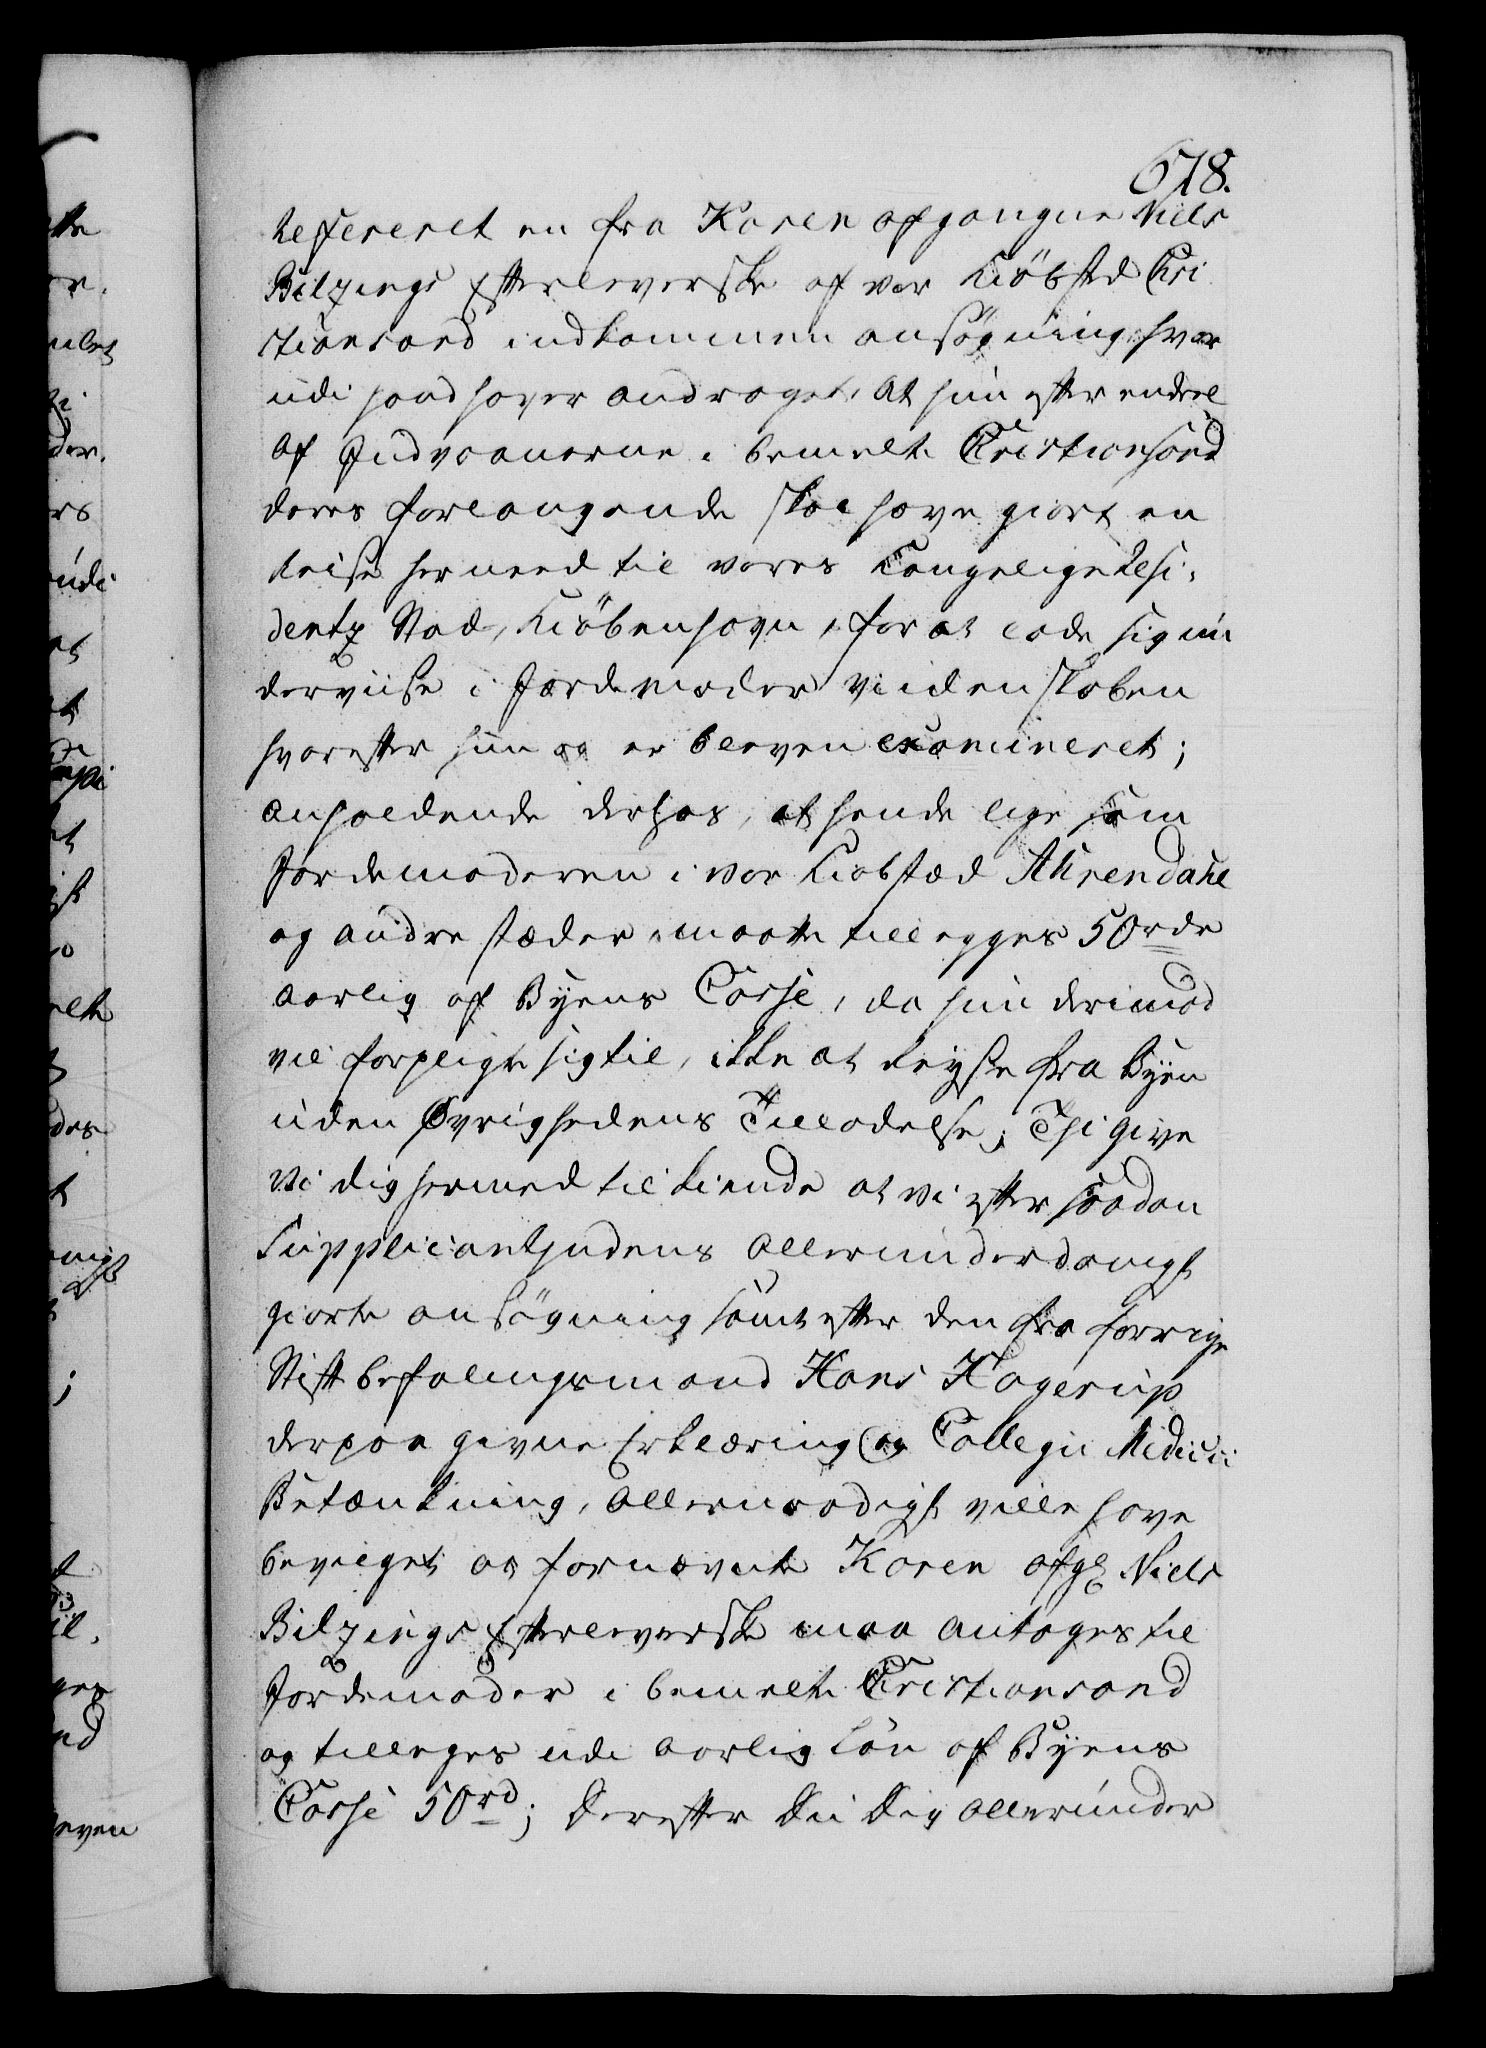 678.
Refereret en fra Karen afgangne Niels
Bilzings Efterleverske af vor Kiöbsted Cri
stiansand indkommen ansøgning, hvor
udi hand haver andraget, at hun efter endeel
af Indvaanerne i bemelte Cristiansand
deres forlangende skal have giort en
Reise her need til vores Kongelige Resi-
dentz Stad, Kiöbenhavn, for at lade sig un
derviise i Jordemoder Videnskaben
hvorefter hun og er bleven examineret;
anholdende derhos, at hende lige som
Jordemoderen i vor Kiobstæd Ahrendahl
og andre stæder, maatte tillegges 50 rdr
aarlig af Byens Casse, da hun derimod
vil forpligte sig til, ikke at Reyse fra Byen
uden Øvrighedens Tilladelse; Thi give
Vi dig hermed til kiende at vi efter saadan
Supplicantindens allerunderdanigst
giorte ansögning samt efter den fra forrige
Stiftbefalingsmand Hans Hagerup
derpaa givne Erklæring og Collegii Medicii
Betænkning, allernaadigst ville have
bevilget at fornævnte Karen afg: Niels
Bilzings Efterleverske maa antages til
Jordemoder i bemelte Cristiansand
og tilleges udi aarlig Lön af Byens
Casse 50 rd; Derefter du dig allerunder
ette
udi
even